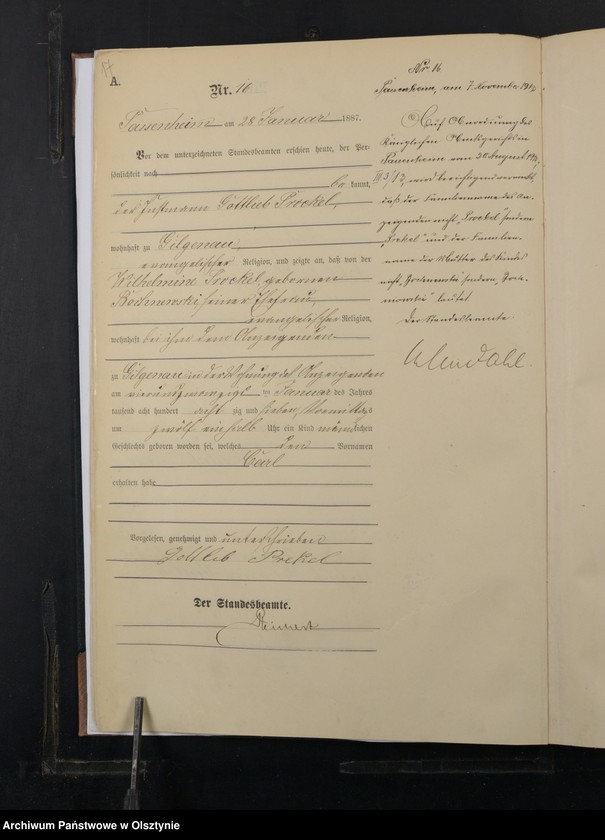 17
A.
Nr. 16
Passenheim am 28. Januar 1887.
Vor dem unterzeichneten Standesbeamten erschien heute, der Per-
sönlichkeit nach
be kannt,
der Instmann Gottlieb Prockel,
wohnhaft zu Gilgenau
evangelischer Religion, und zeigte an, daß von der
Wilhelmine Prockel geborenen
seiner Ehefrau,
evangelischer Religion,
wohnhaft bei ihm dem Anzeigenden
zu Gilgenau in der Wohnung des Anzeigenden
am vierundzwanzigsten Januar des Jahres
tausend acht hundert acht zig und sieben, Vormittags
um zwölf einhalb Uhr ein Kind männlichen
Geschlechts geboren worden sei, welches den Vornamen
Carl
erhalten habe
Vorgelesen, genehmigt und unterschrieben
Gottlieb Prekel
Der Standesbeamte.
Nr 16
Passenheim, am 7. November
Auf Anordnung des
Königlichen Amtsgerichts in
Passenheim vom August
wird berichtigend vermerkt,
daß der Familienname des An-
zeigenden nicht "Prockel" sondern
"Prekel" und der Familien-
name der Mutter des Kindes
nicht sondern
lautet.
Der Standesbeamte.
Archiwum Państwowe w Olsztynie